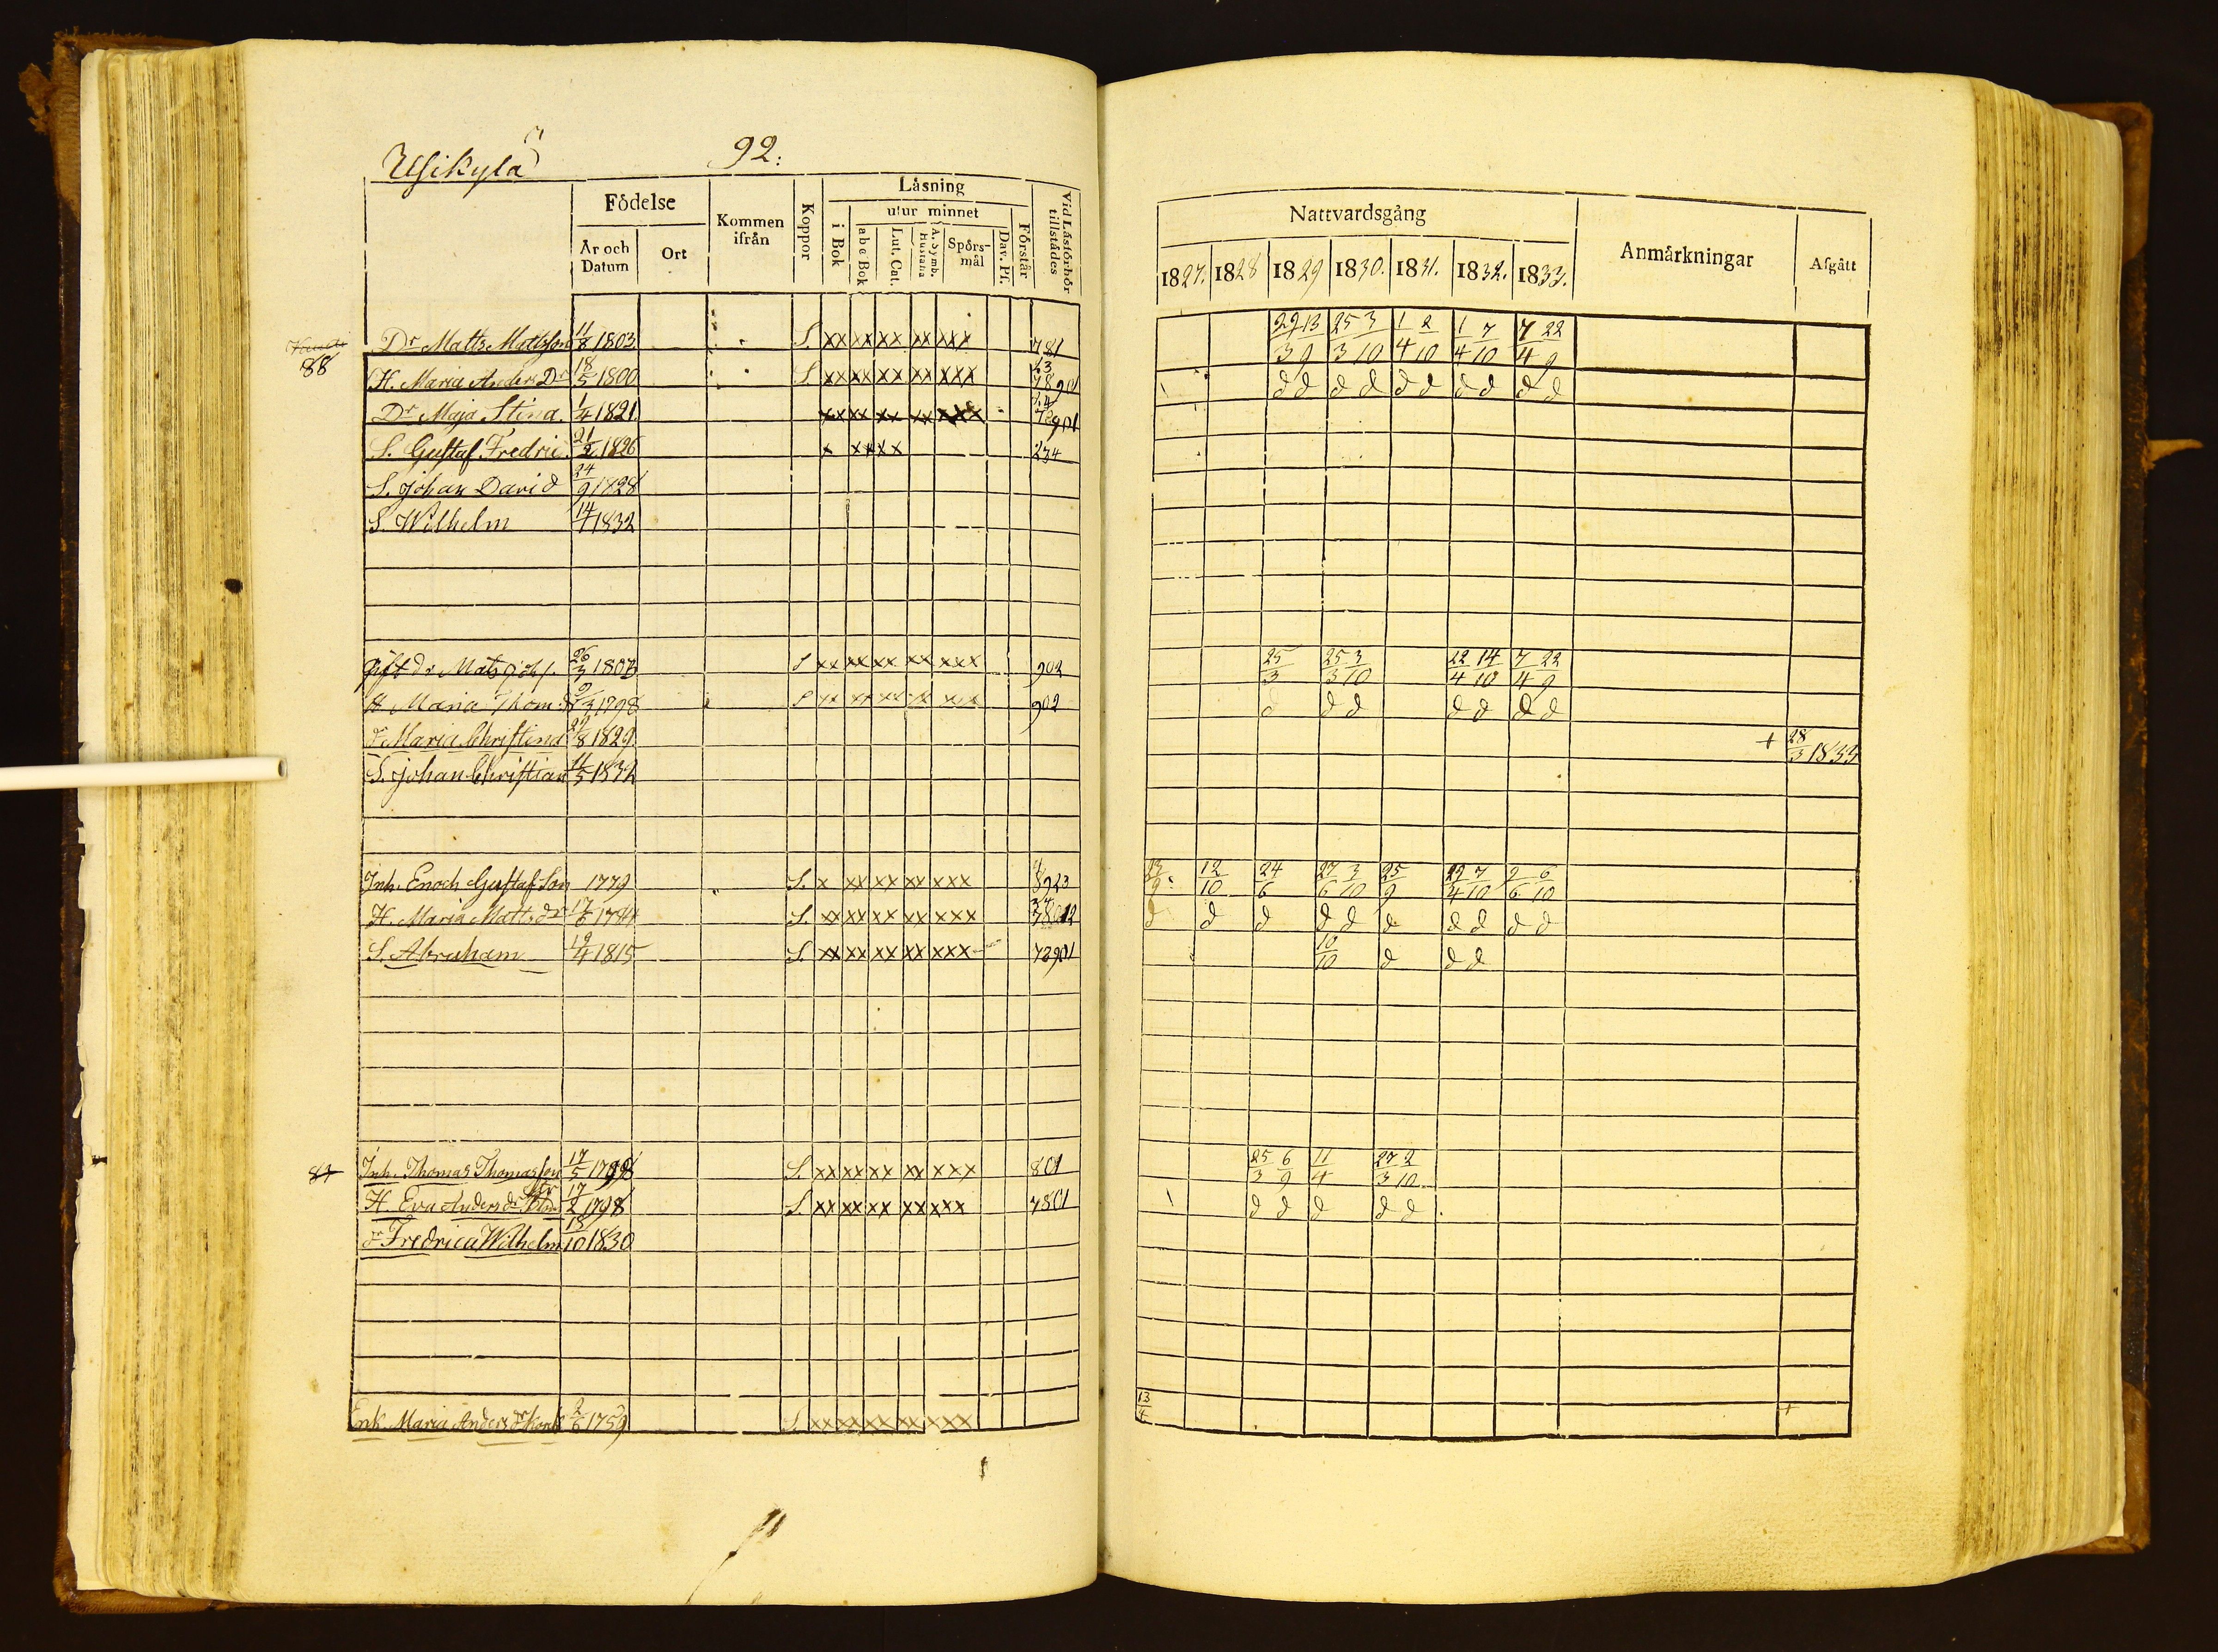 Usikylä 92:
Födelse Kommen ifrån Koppor Läsning Vid Läsförhör tillstådes
År och Datum Ort i Bok utur minnet Förstår
a b c Bok Lut. Cat. A. Symb. Hustafla Spörsmål Dav. Ps.
Nattvardsgång Anmärkningar Afgått
1827. 1828 1829 1830. 1831. 1832. 1833.
Dr Matts Mattsson 11/8 1803 S. xx xx xx xx xxx 781 29/3 13/9 25/3 3/10 1/4 2/10 1/4 7/10 7/4 22/9
88 H. Maria Anders Dr 18/5 1800 S xx xx xx xx xxx 78901 d d d d d d d d d d
Dr Maja Stina 1/4 1821 xx xx xx xx xxx 78901
S. Gustaf Fredric 21/2 1826 x xx xx 234
S. Johan David 24/9 1828
S. Wilhelm 14/1 1832
Gift dr Mats Joh f. 26/3 1803 S xx xx xx xx xxx 902 25/3 25/3 3/10 22/4 14/10 7/4 22/9
H Maria Thom: d 9/3 1798 S xx xx xx xx xxx 902 d d d d d d d
d Maria Christina 29/8 1829 + 28/3 1833
S. Johan Christian 11/5 1832
Inh. Enoch Gustafson 1779 S. x xx xx xx xxx 8923 23/9 12/10 24/6 27/6 3/10 25/9 29/4 7/10 9/6 6/10
H. Maria Matts dr 17/6 1784 S. xx xx xx xx xxx d d d d d d d d d d
S. Abraham 19/4 1815 S. xx xx xx xx xxx 78901 10/10 d d d
Inh. Thomas Thomasson 17/5 1798 S. xx xx xx xx xxx 801 25/3 6/9 11/4 27/3 2/10
H. Eva Anders dr 17/2 1798 S. xx xx xx xx xxx 7801 d d d d d
dr Fredrica Wilhelm 18/10 1830
Enk. Maria Anders dr 2/6 1759 S. xx xx xx xx xxx 13/4 +